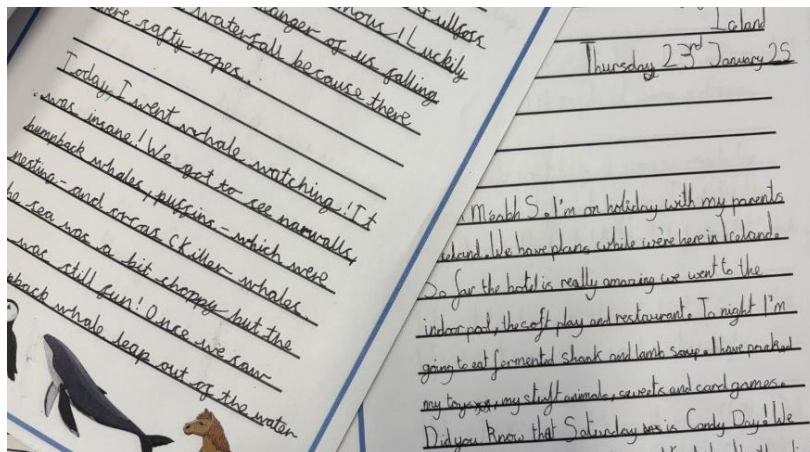 ullfoss
nous! Luckily
anger of us falling
waterfall because there
ere safty ropes..
Today, I went whale watching! It
was insane! We got to see narwalls,
humpback whales, puffins - which were
nesting - and orcas (killer whales
he sea was a bit choppy but the
was still fun! Once we saw
pback whale leap out of the water
Iceland
Thursday 23rd January 25
Méabh S. I'm on holiday with my parents
Iceland. We have plans while we're here in Iceland.
So far the hotel is really amazing we went to the
indoor pool, the soft play and restaurant. To night I'm
going to eat formented shark and lamb soup. I have packed
my toys, my stuft animals, sweets and card games.
Did you know that Saturday is Candy Day! We